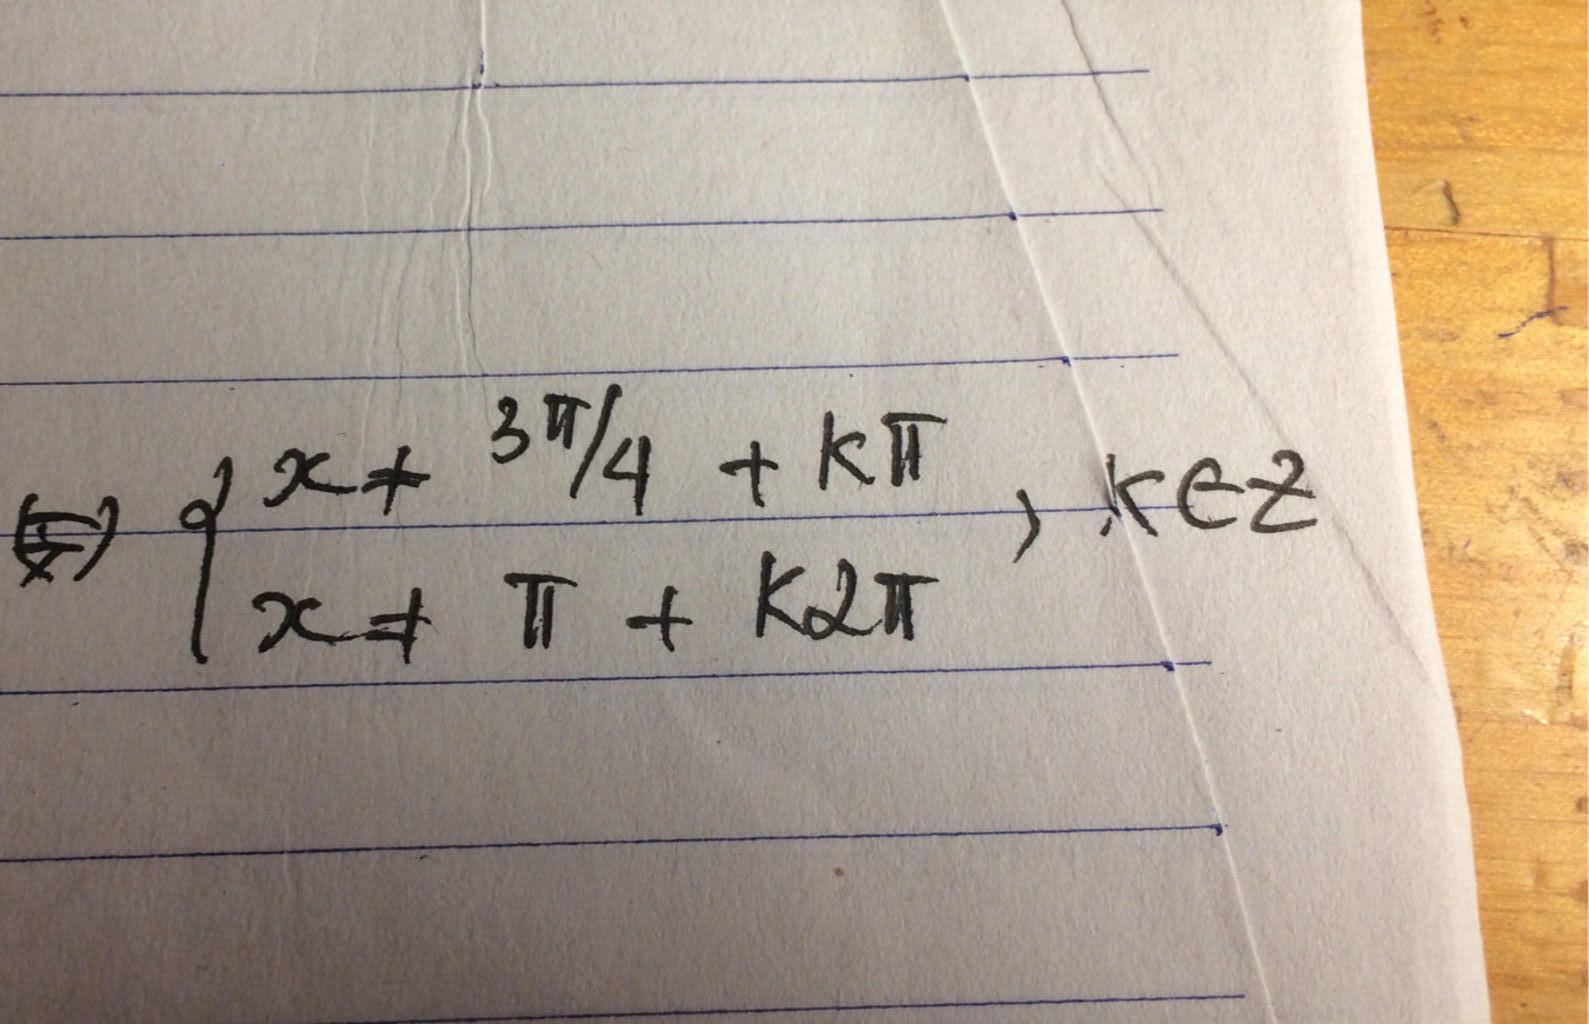 ⇔ { x ≠ 3π/4 + kπ
x ≠ π + k2π , k ∈ Z